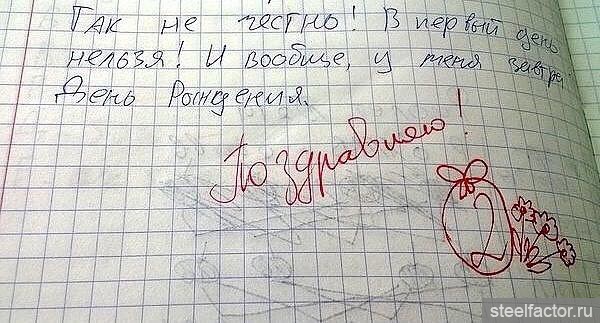 Так не честно! В первый день
нельзя! И вообще, у меня завтра
День Рождения.
Поздравляю!
2
steelfactor.ru